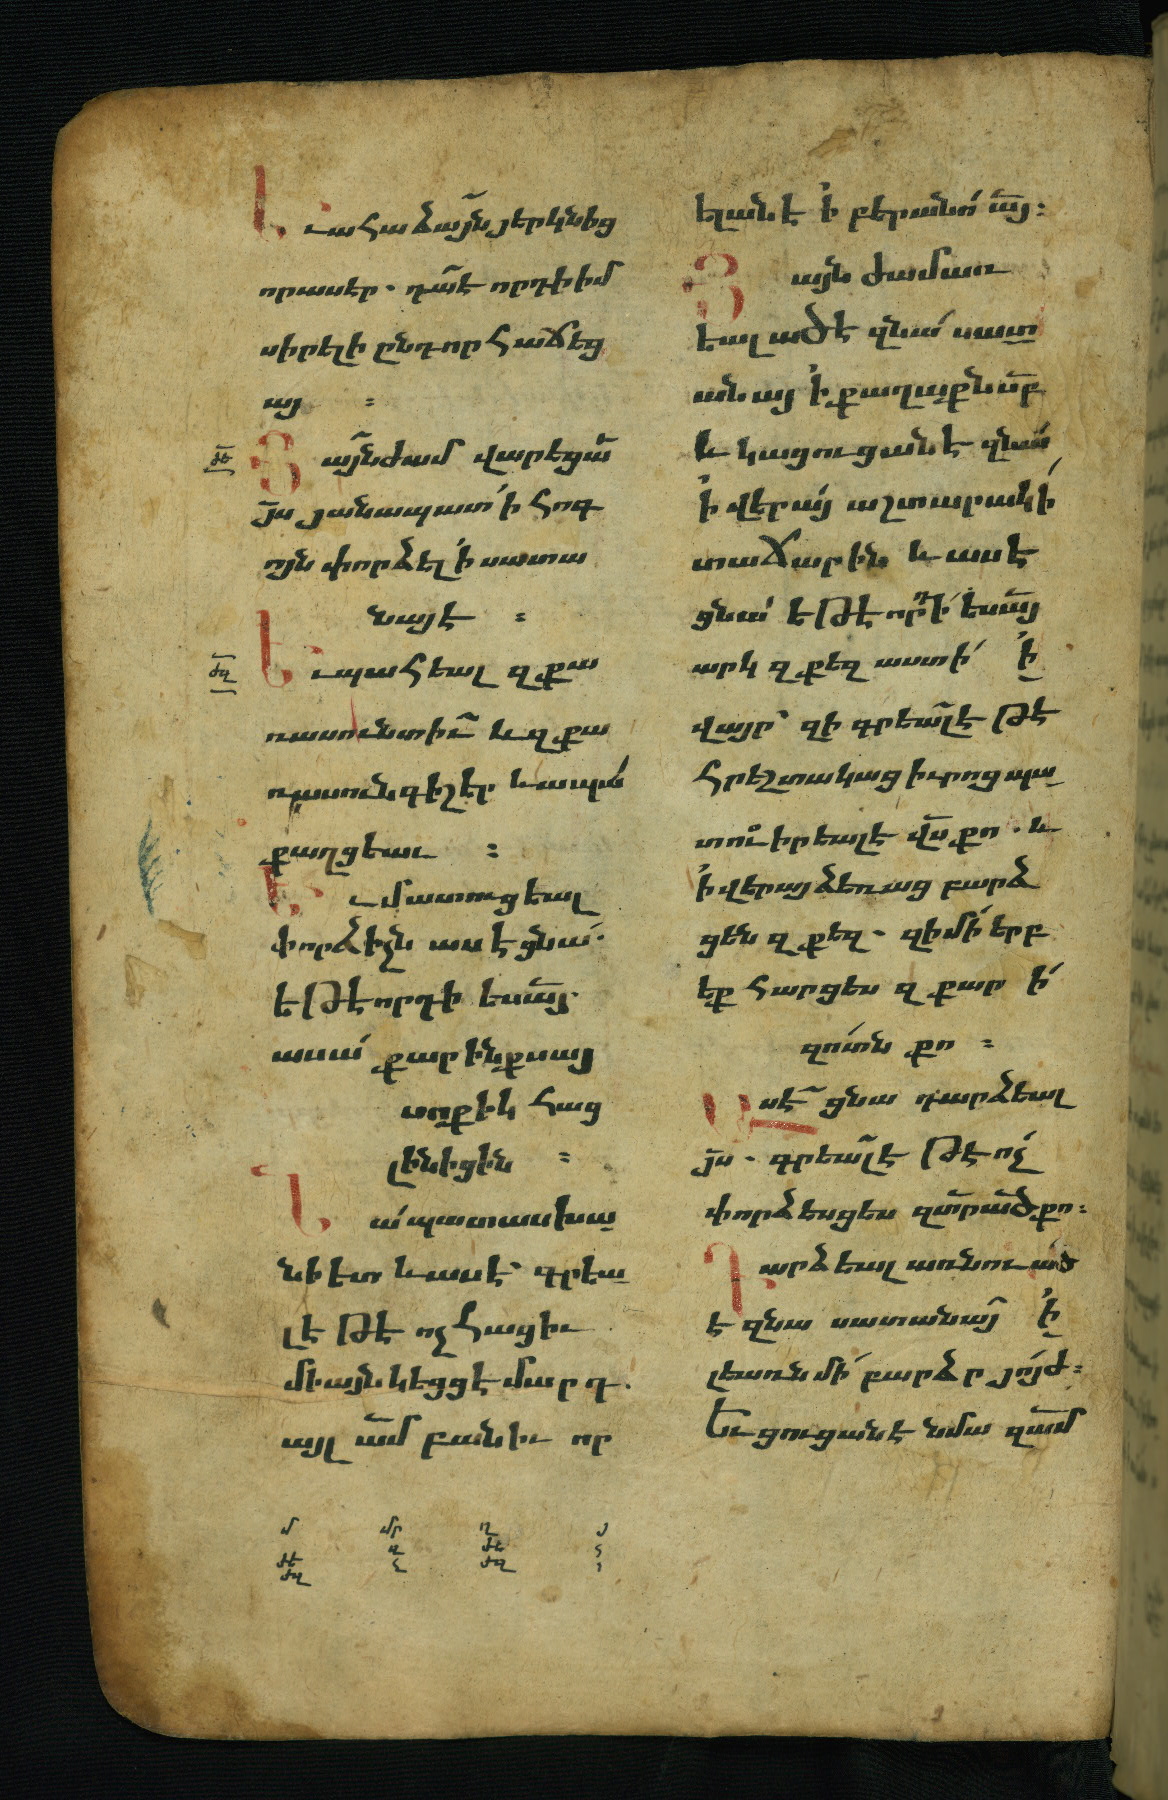 Եւ ահա ձայն յերկնից
որ ասէր . դա է որդի իմ
սիրելի ընդ որ հաճեց
այ :
ԺԵ Յայնժամ վարեցաւ
յս յանապատ ի հոգ
ոյն փորձել ի սատա
նայէ :
ԺԶ Եւ պահեալ զքա
ռասուն տիւ և զքա
ռասուն գիշեր և ապա
քաղցեաւ :
Եւ մատուցեալ
փորձիչն ասէ ցնա .
եթէ որդի ես այ
ասա քարինքս այ
սոքիկ հաց
լինիցին :
Նա պատասխա
նի ետ և ասէ գրեա
լ է թէ ոչ հացիւ
միայն կեցցէ մարդ .
այլ ամ բանիւ որ
ելանէ ի բերանոյ այ :
Յայն ժամ առ
եալ ածէ զնա սատ
անայ ի քաղաքն սբ
և կացուցանէ զնա
ի վերայ աշտարակի
տաճարին և ասէ
ցնա եթէ որդի ես այ
արկ զքեզ աստի ի
վայր զի գրեալ է թէ
հրեշտակաց իւրոց պա
տուիրեալ է վս քո . և
ի վերայ ձեռաց բարձ
ցեն զքեզ . զի մի երբ
եք հարցես զքարի
զոտն քո :
Ասէ ցնա դարձեալ
յս . գրեալ է թէ ոչ
փորձեսցես զտր ած քո :
Դարձեալ առնու ած
է զնա սատանայ ի
լեառն մի բարձր յոյժ :
Եւ ցուցանէ նմա զամ
մ մր ղ յ